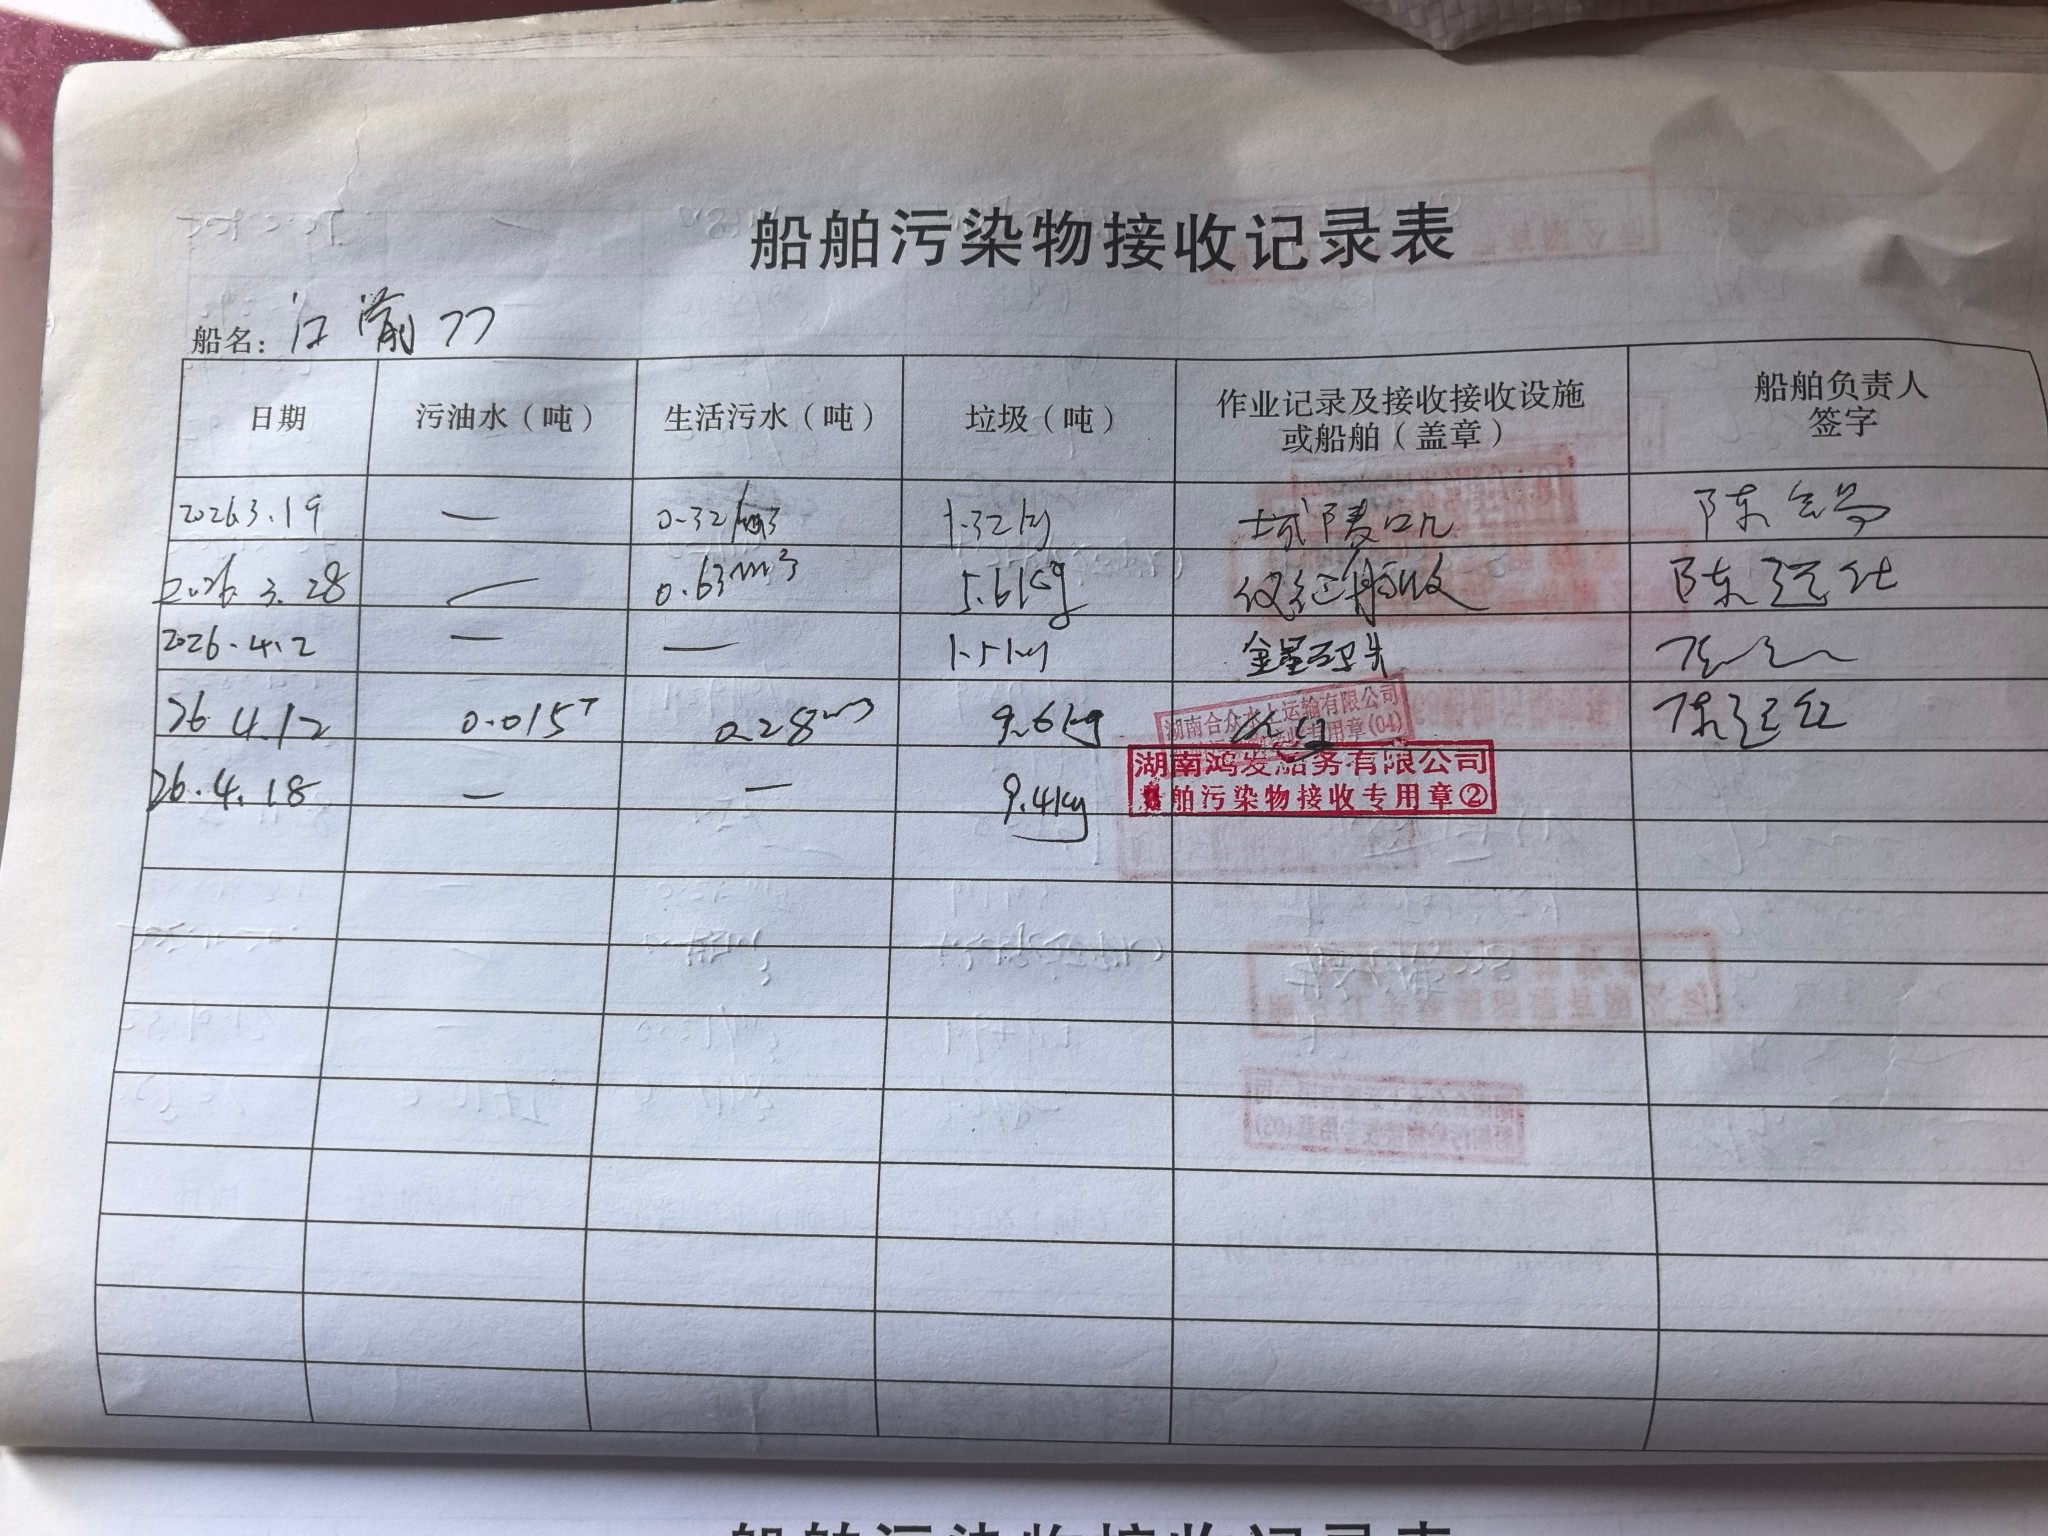 船舶污染物接收记录表
船名：江 77
日期 污油水（吨） 生活污水（吨） 垃圾（吨） 作业记录及接收接收设施或船舶（盖章） 船舶负责人签字
2026.3.19 — 0.32 m3 1.32kg 城陵矶 陈
2026.3.28 — 0.63m3 5.61kg 仪征 收 陈
2026.4.2 — — 1.51kg 金星码头
26.4.12 0.015T 0.28m3 9.6kg 陈
湖南合众水上运输有限公司
专用章(04)
26.4.18 — — 9.4kg
湖南鸿发船务有限公司
船舶污染物接收专用章②
船舶污染物接收记录表